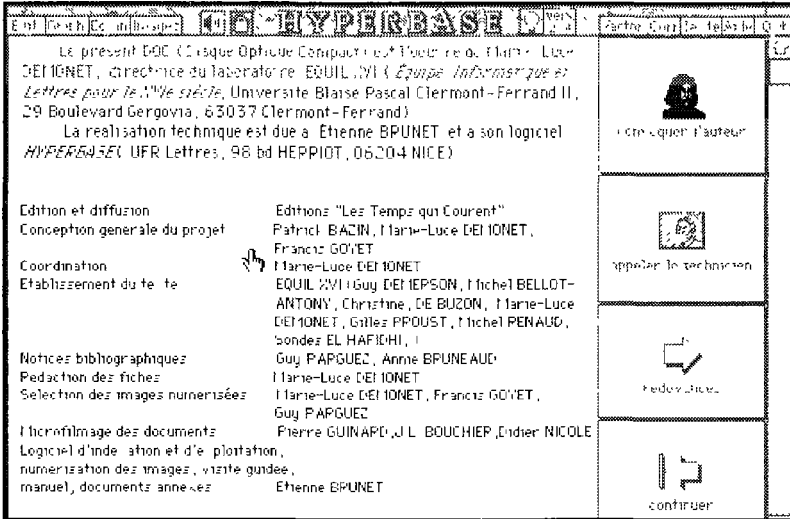 HYPERBASE
Le présent DOC (Disque Optique Compact) est l'oeuvre de Marie-Luce
DEMONET, directrice du laboratoire EQUIL XVI (Équipe Informatique et
Lettres pour le XVIe siècle, Universite Blaise Pascal Clermont-Ferrand II,
29 Boulevard Gergovia, 63037 Clermont-Ferrand)
La realisation technique est due a Etienne BRUNET et a son logiciel
HYPERBASE( UFR Lettres, 98 bd HERRIOT, 06204 NICE)
Edition et diffusion Editions "Les Temps qui Courent"
Conception generale du projet Patrick BAZIN, Marie-Luce DEMONET,
Francis GOYET
Coordination Marie-Luce DEMONET
Etablissement du texte EQUIL XVI (Guy DEMERSON, Michel BELLOT-
ANTONY, Christine, DE BUZON, Marie-Luce
DEMONET, Gilles PROUST, Michel RENAUD,
Sondes EL HAFIDHI,
Notices bibliographiques Guy PARGUEZ, Annie BRUNEAUD
Redaction des fiches Marie-Luce DEMONET
Selection des images numerisées Marie-Luce DEMONET, Francis GOYET,
Guy PARGUEZ
Microfilmage des documents Pierre GUINARD, J.L. BOUCHIER, Didier NICOLE
Logiciel d'indexation et d'exploitation,
numerisation des images, visite guidee,
manuel, documents annexes Etienne BRUNET
evoquer l'auteur
appeler le technicien
redevances
continuer